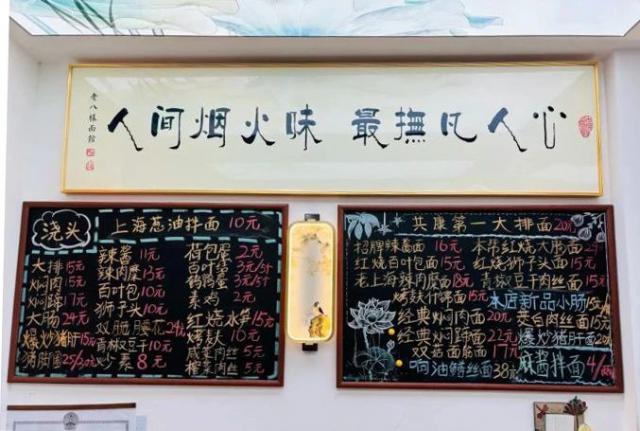 人间烟火味 最撫凡人心
老八樣面館
浇头
上海葱油拌面 10元
大排 15元
焖肉 15元
焖蹄 17元
大肠 24元
爆炒猪肝 15元
猪脚圈 25/30元
辣酱 11元
辣肉 13元
百叶包 10元
狮子头 10元
双脆腰花 24元
青椒豆干 10元
炒素 8元
荷包蛋 2元
百叶 3元/5
鹌鹑蛋 3元/5
素鸡 2元
红烧水笋 15元
烤麸 10元
咸菜肉丝 5元
榨菜肉丝 5元
共康第一大排面 20元
招牌辣酱面 16元
红烧百叶包面 15元
老上海辣肉面 18元
烤麸什锦面 15元
经典焖肉面 20元
经典焖蹄面 22元
双菇面筋面 17元
响油鳝丝面 38元
本帮红烧大肠面
红烧狮子头面 15元
青椒豆干肉丝面 15元
本店新品小肠
茭白肉丝面
爆炒猪肝面
麻酱拌面 4/